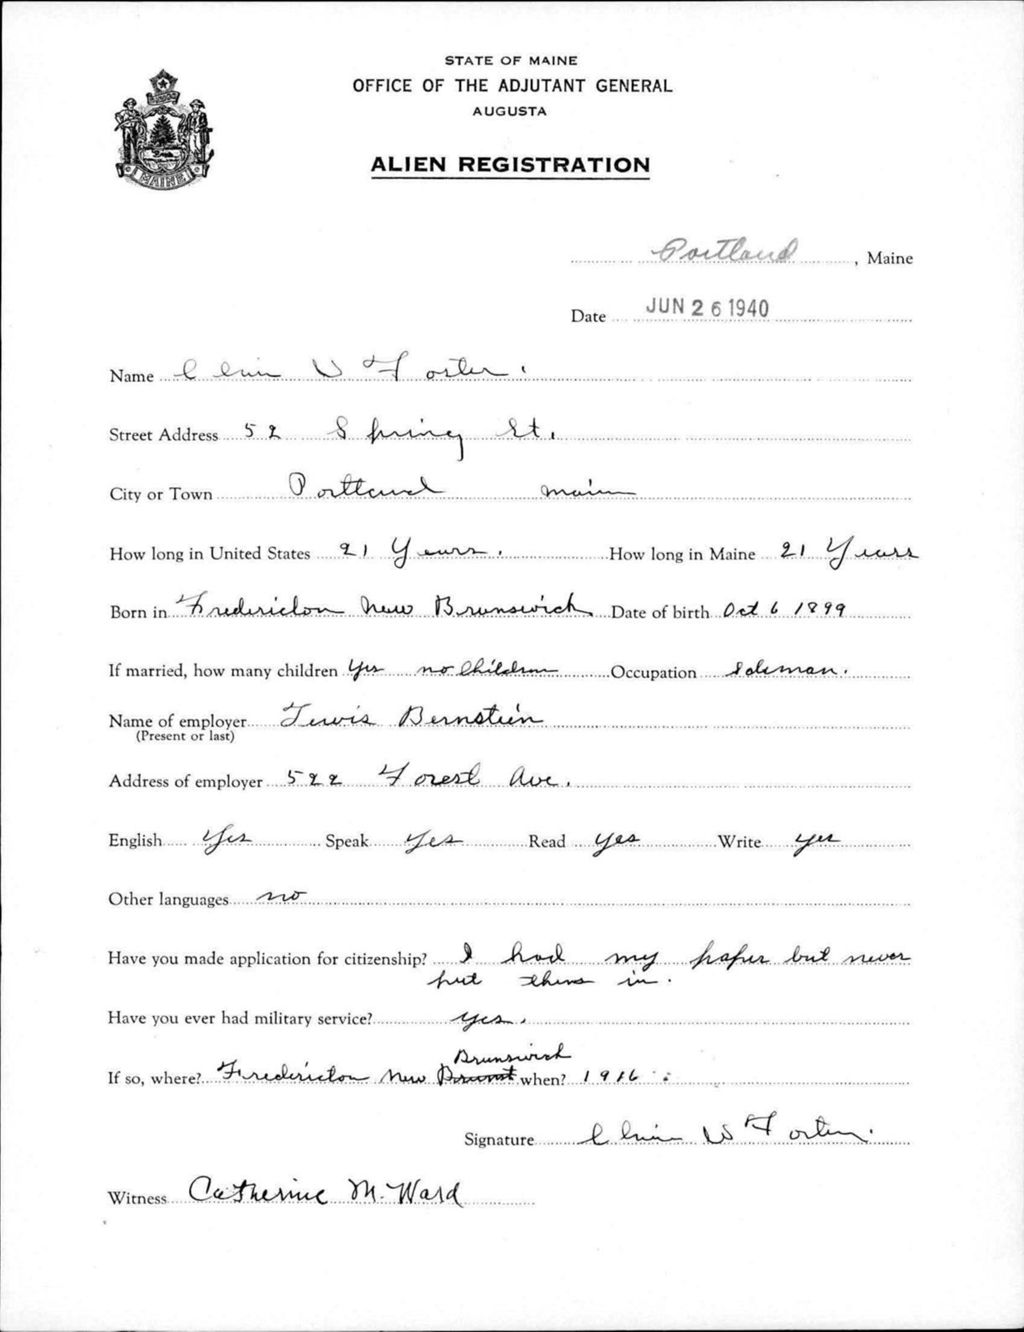 STATE OF MAINE
OFFICE OF THE ADJUTANT GENERAL
AUGUSTA
MAINE
ALIEN REGISTRATION
Portland, Maine
Date JUN 26 1940
Name W Foster.
Street Address 52 Spring St.
City or Town Portland Maine
How long in United States 21 Years. How long in Maine 21 Years
Born in Fredericton New Brunswick Date of birth Oct 6 1899
If married, how many children Yes no Children Occupation Salesman.
Name of employer Bernstein
(Present or last)
Address of employer 522 Forest Ave.
English Yes Speak Yes Read Yes Write Yes
Other languages no
Have you made application for citizenship? I had my paper but never
put them in.
Have you ever had military service? yes.
Brunswick
If so, where? Fredericton New when? 1916
Signature W Foster.
Witness Catherine M. Ward